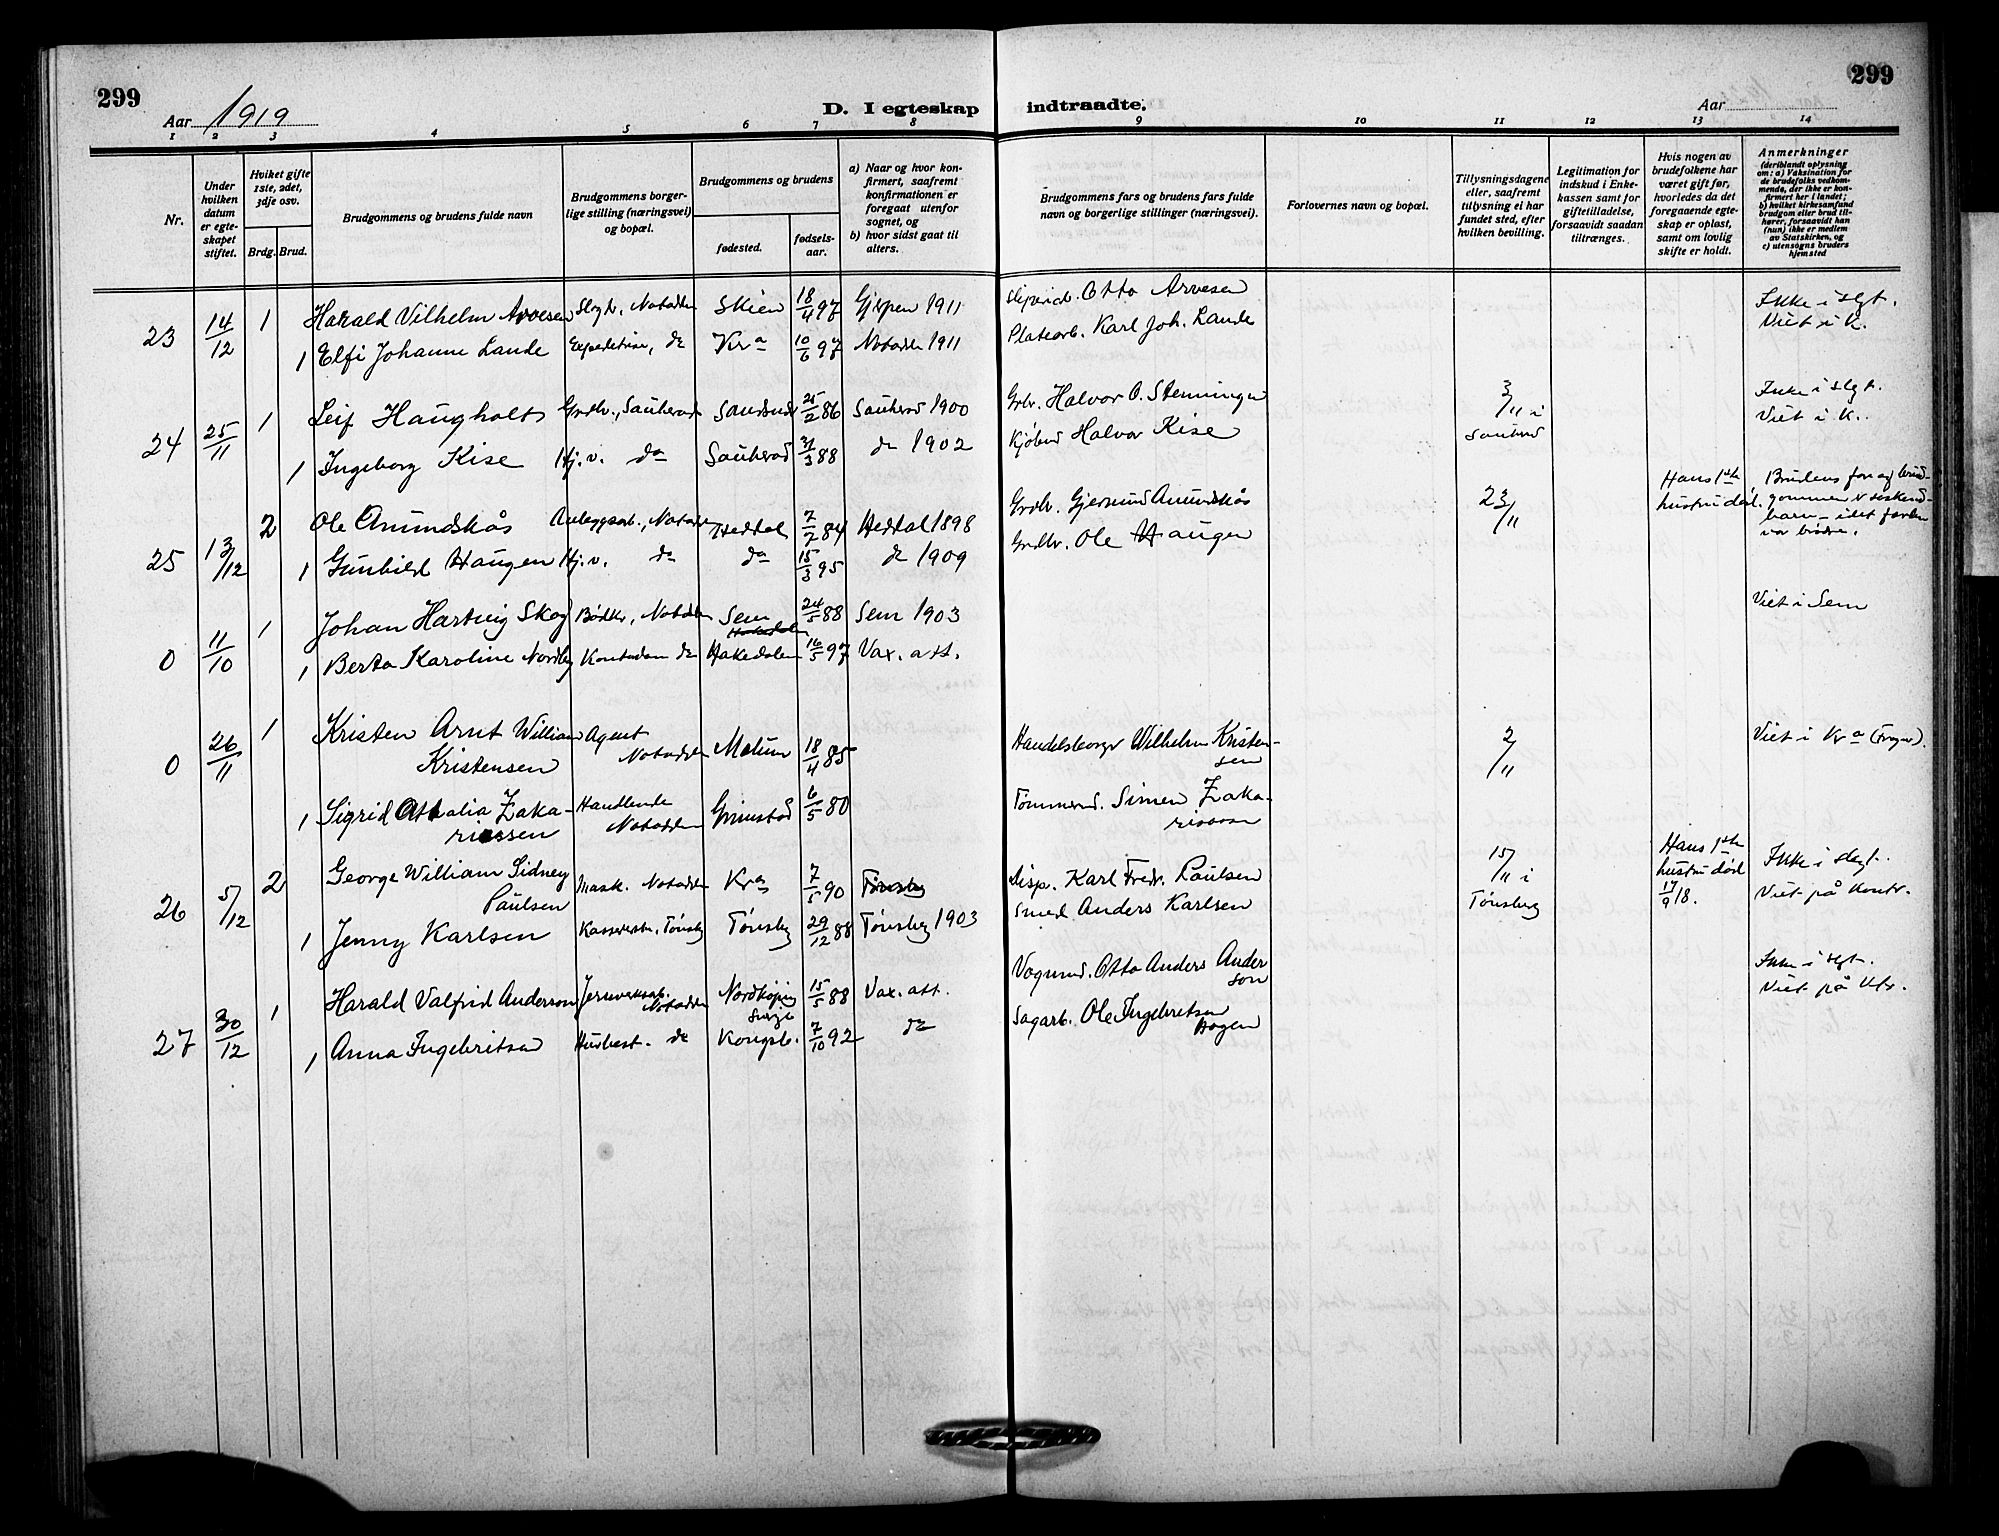 299
299
Aar 1919
D. I egteskap indtraadte.
Aar
1 2 3 4 5 6 7 8 9 10 11 12 13 14
Nr.
Under hvilken datum er egteskapet stiftet.
Hviket gifte 1ste, 2det, 3dje osv.
Brdg. Brud.
Brudgommens og brudens fulde navn
Brudgommens borgerlige stilling (næringsvei) og bopæl.
Brudgommens og brudens
fødested.
fødselsaar.
a) Naar og hvor konfirmert, saafremt konfirmationen er foregaat utenfor sognet, og
b) hvor sidst gaat til alters.
Brudgommens fars og brudens fars fulde navn og borgerlige stillinger (næringsvei).
Forlovernes navn og bopæl.
Tillysningsdagene eller, saafremt tillysning ei har fundet sted, efter hvilken bevilling.
Legitimation for indskud i Enkekassen samt for giftetilladelse, forsaavidt saadan tiltrænges.
Hvis nogen av brudefolkene har været gift før, hvorledes da det foregaaende egteskap er opløst, samt om lovlig skifte er holdt.
Anmerkninger (deriblandt oplysning om: a) Vaksination for de brudefolks vedkommende, der ikke er konfirmert her i landet; b) hvilket kirkesamfund brudgom eller brud tilhører, forsaavidt han (hun) ikke er medlem av Statskirken, og c) utensogns bruders hjemsted
23 14/12 1 Harald Vilhelm Arvesen Notodden Skien 18/4 97 Gjerpen 1911 Otto Arvesen Ikke i slgt. Viet i K.
1 Elfi Johanne Lande Expeditrise, do Kra 10/6 97 Notodden 1911 Platearb. Karl Joh. Lande
24 25/11 1 Leif Haugholt Grdbr., Sauherad Sandsund 25/2 86 Sauherad 1900 Grbr. Halvor O. Stenninger 3/11 i Sauherad Ikke i slgt. Viet i K.
1 Ingeborg Kise Hj.v. do Sauherad 31/3 88 do 1902 Halvor Kise
25 13/12 2 Ole Amundskås Anlegsarb., Notodden Hedtal 7/2 84 Hedtal 1898 Grdbr. Gjermund Amundskås 23/11 Hans 1ste hustru død. Brudens far og brudgommen er søskendbarn – idet fædrene var brødre.
1 Gunhild Haugen Hj.v. do do 15/3 95 do 1909 Grdbr. Ole Haugen
0 11/10 1 Johan Hartvig Skog Bødker, Notodden Sem 24/5 88 Sem 1903 Viet i Sem
1 Berta Karoline Nordby Kontordam do Hakedalen 16/5 97 Vax. att.
0 26/11 1 Kristen Arnt William Kristensen Agent Notodden Melum 18/4 85 Handelsborger Wilhelm Kristensen 2/11 Viet i Kra (Frogner).
1 Sigrid Attalia Zakariassen Handlende Notodden Grimstad 6/5 80 Tømmerm. Simen Zakariassen
26 5/12 2 George William Sidney Paulsen Mask. Notodden Kra 7/5 90 Tønsberg Disp. Karl Fredr. Paulsen 15/11 i Tønsberg Hans 1ste hustru død 17/9 18. Ikke i slegt. Viet på kontr.
1 Jenny Karlsen Kassererske, Tønsbg Tønsbg 29/12 88 Tønsbeg 1903 Smed Anders Karlsen
27 30/12 1 Harald Valfrid Anderson Jernverksarb. Notodden Nordkøping Sverge 15/5 88 Vax. att. Vognmd. Otto Anders Anderson Ikke i slgt. Viet på Ktr.
1 Anna Ingebritsen Husbest. do Kongsb. 7/10 92 do Sagarb. Ole Ingebritsen Hagen